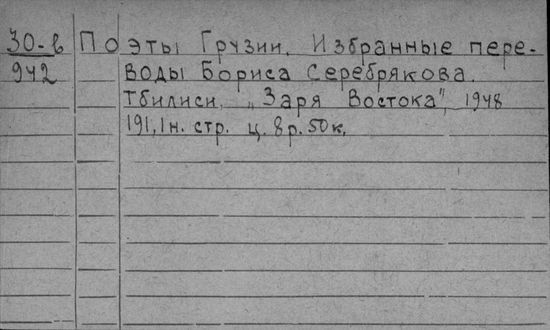 30-в
942
Поэты Грузии. Избранные пере-
воды Бориса Серебрякова.
Тбилиси, „Заря Востока", 1948
191,1 н. стр. ц. 8 р. 50 к.